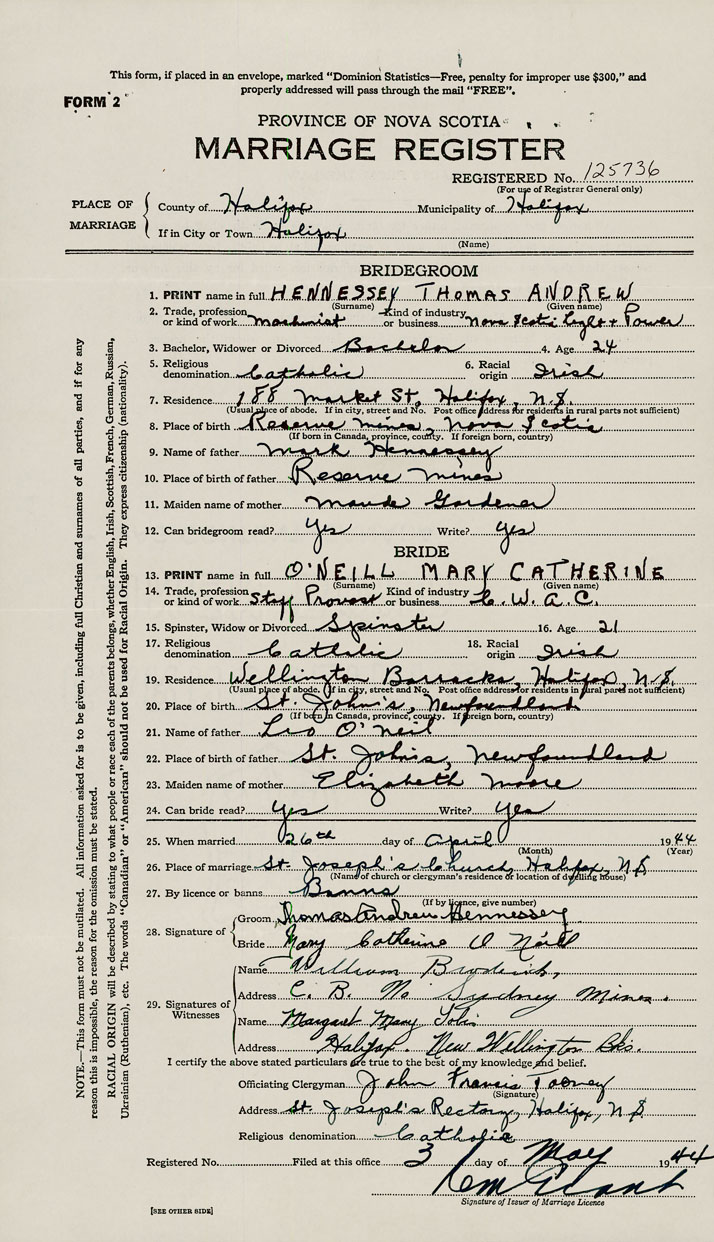 This form, if placed in an envelope, marked "Dominion Statistics—Free, penalty for improper use $300," and
properly addressed will pass through the mail "FREE".
FORM 2
PROVINCE OF NOVA SCOTIA
MARRIAGE REGISTER
REGISTERED No. 125736
(For use of Registrar General only)
PLACE OF MARRIAGE
County of Halifax Municipality of Halifax
If in City or Town Halifax
(Name)
BRIDEGROOM
1. PRINT name in full HENNESSEY THOMAS ANDREW
(Surname) (Given name)
2. Trade, profession or kind of work Machinist Kind of industry or business Nova Scotia Light + Power
3. Bachelor, Widower or Divorced Bachelor 4. Age 24
5. Religious denomination Catholic 6. Racial origin Irish
7. Residence 188 Market St, Halifax, N.S.
(Usual place of abode. If in city, street and No. Post office address for residents in rural parts not sufficient)
8. Place of birth Reserve Mines, Nova Scotia
(If born in Canada, province, county. If foreign born, country)
9. Name of father Mark Hennessey
10. Place of birth of father Reserve Mines
11. Maiden name of mother Maude Gardener
12. Can bridegroom read? Yes Write? Yes
BRIDE
13. PRINT name in full O'NEILL MARY CATHERINE
(Surname) (Given name)
14. Trade, profession or kind of work Staff Provost Kind of industry or business C.W.A.C.
15. Spinster, Widow or Divorced Spinster 16. Age 21
17. Religious denomination Catholic 18. Racial origin Irish
19. Residence Wellington Barracks, Halifax, N.S.
(Usual place of abode. If in city, street and No. Post office address for residents in rural parts not sufficient)
20. Place of birth St. John's, Newfoundland
(If born in Canada, province, county. If foreign born, country)
21. Name of father Leo O'Neil
22. Place of birth of father St. Johns, Newfoundland
23. Maiden name of mother Elizabeth Moore
24. Can bride read? Yes Write? Yes
25. When married 26th day of April 1944
(Month) (Year)
26. Place of marriage St. Joseph's Church, Halifax, N.S.
(Name of church or clergyman's residence or location of dwelling house)
27. By licence or banns Banns
(If by licence, give number)
28. Signature of
Groom Thomas Andrew Hennessey
Bride Mary Catherine O'Neill
29. Signatures of Witnesses
Name William Broderick,
Address C. B. No Sydney Mines.
Name Margaret Mary Tobin
Address Halifax. New Wellington Bks.
I certify the above stated particulars are true to the best of my knowledge and belief.
Officiating Clergyman John Francis Toomey
(Signature)
Address St. Joseph's Rectory, Halifax, N.S.
Religious denomination Catholic
Registered No. Filed at this office 3 day of May 1944
Signature of Issuer of Marriage Licence
[SEE OTHER SIDE]
NOTE.—This form must not be mutilated. All information asked for is to be given, including full Christian and surnames of all parties, and if for any
reason this is impossible, the reason for the omission must be stated.
RACIAL ORIGIN will be described by stating to what people or race each of the parents belongs, whether English, Irish, Scottish, French, German, Russian,
Ukrainian (Ruthenian), etc. The words "Canadian" or "American" should not be used for Racial Origin. They express citizenship (nationality).